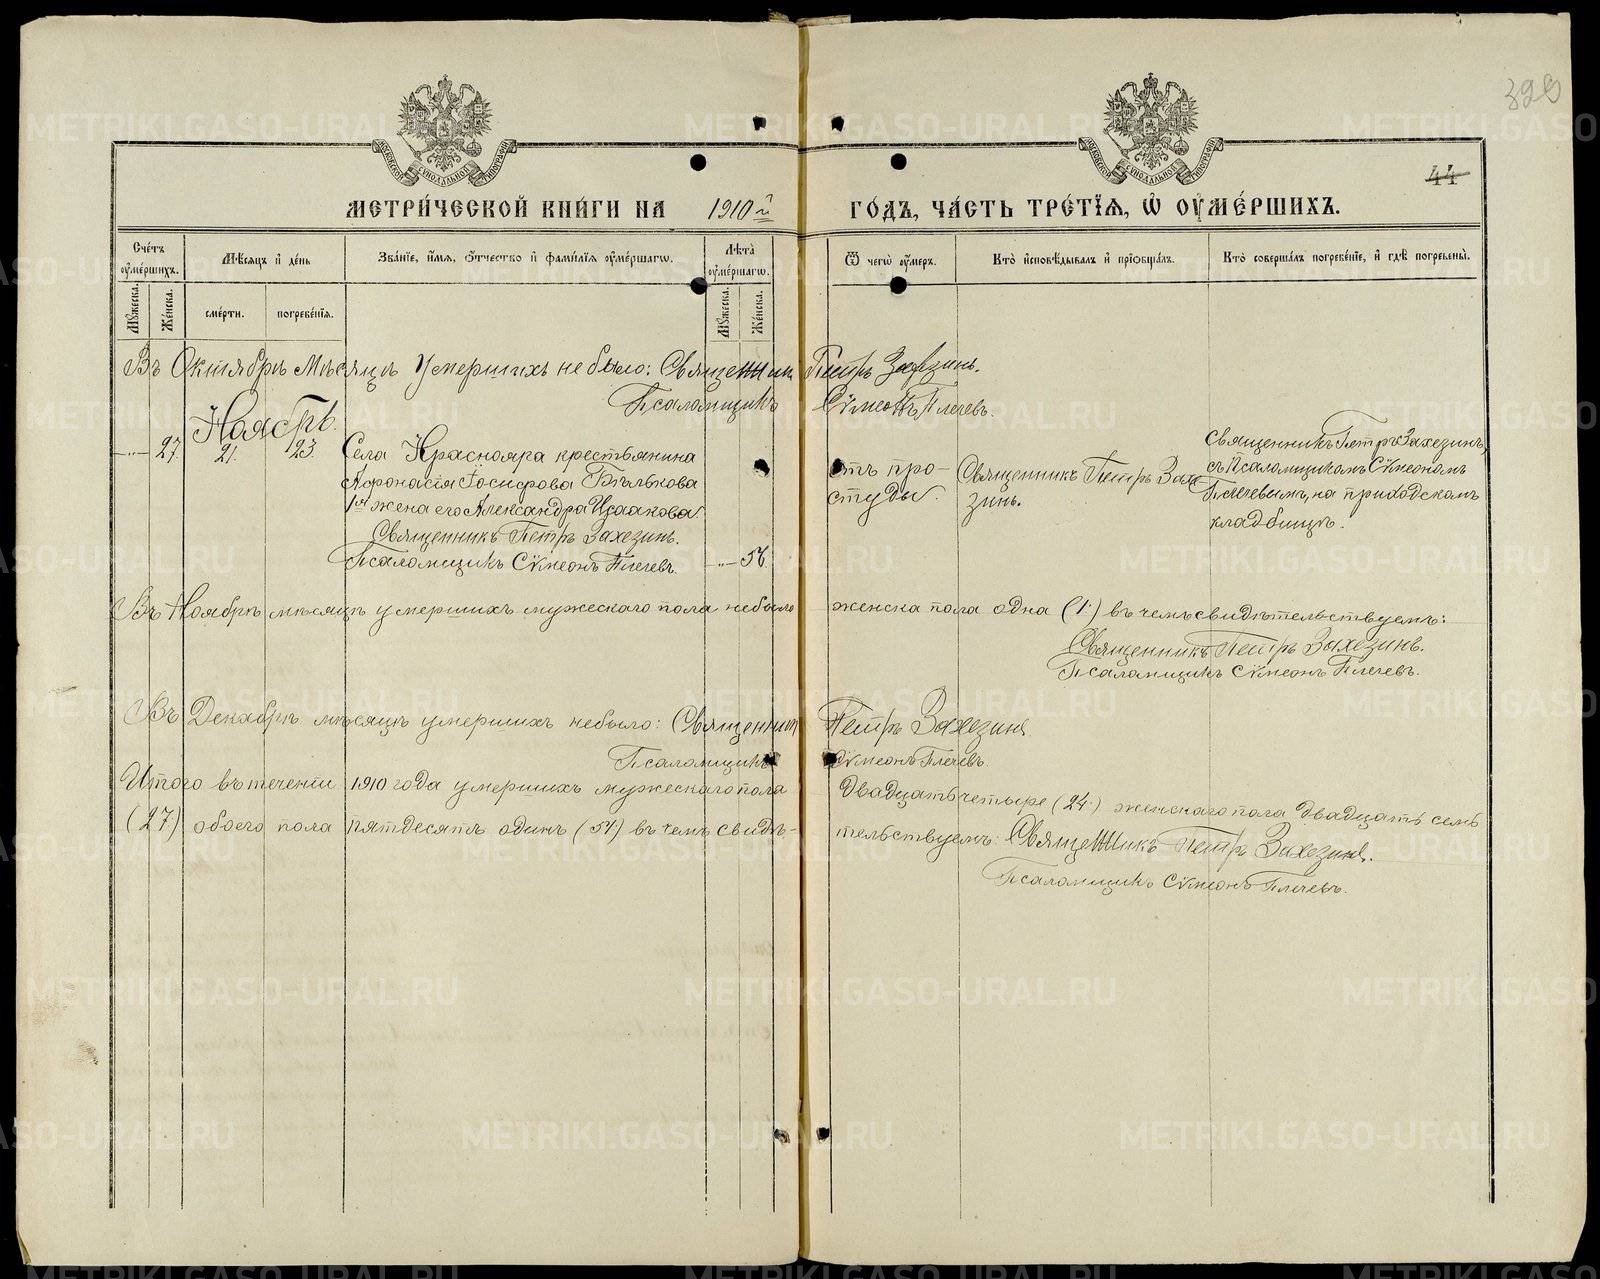 329
44
МОСКОВСКОЙ СѴНОДАЛЬНОЙ ТИПОГРАФІИ
МОСКОВСКОЙ СѴНОДАЛЬНОЙ ТИПОГРАФІИ
МЕТРИ́ЧЕСКОЙ КНИ́ГИ НА 1910 й ГО́ДЪ, ЧА́СТЬ ТРЕ́ТІѦ, Ѡ ОУМЕ́РШИХЪ.
Сче́тъ оуме́ршихъ.
Мѣ́сяцъ и де́нь
Зва́ніе, и́мя, о́тчество и фами́лія оуме́ршагѡ.
Лѣта̀ оуме́ршагѡ.
Ѿ чегѡ̀ оу́меръ.
Кто̀ исповѣ́дывалъ и пріобща́лъ.
Кто̀ соверша́лъ погребе́ніе, и гдѣ̀ погребены̀.
Му́жеска.
Же́нска.
сме́рти.
погребе́нія.
Му́жеска.
Же́нска.
Въ Октябрѣ Мѣсяцѣ умершихъ не было: Священник Петръ Захезинъ.
Псаломщикъ Сѵмеонъ Плечевъ.
Ноябрь.
–„– 27. 21. 23. Села Краснояра крестьянина
Афонасія Іосифова Бѣлькова
1я жена его Александра Исаакова.
Священникъ Петръ Захезинъ.
Псаломщикъ Сѵмеонъ Плечевъ. –„– 56.
отъ про-
студы.
Священникъ Петръ Захе
зинъ.
Священникъ Петръ Захезинъ,
съ Псаломщикомъ Сѵмеономъ
Плечевымъ, на приходскомъ
кладбищѣ.
Въ Ноябрѣ мѣсяцѣ умершихъ мужескаго пола небыло женска пола одна (1.) въ чемъ свидѣтельствуемъ:
Священникъ Петръ Захезинъ.
Псаломщикъ Сѵмеонъ Плечевъ.
Въ Декабрѣ мѣсяцѣ умершихъ небыло: Священник Петръ Захезинъ
Псаломщикъ Сѵмеонъ Плечевъ.
Итого въ теченіи 1910 года умершихъ мужескаго пола Двадцать четыре (24.) женскаго пола Двадцать семь
(27) обоего пола пятдесятъ одинъ (51) въ чемъ свидѣ- тельствуемъ: Священникъ Петръ Захезинъ.
Псаломщикъ Сѵмеонъ Плечевъ.
METRIKI.GASO-URAL.RU